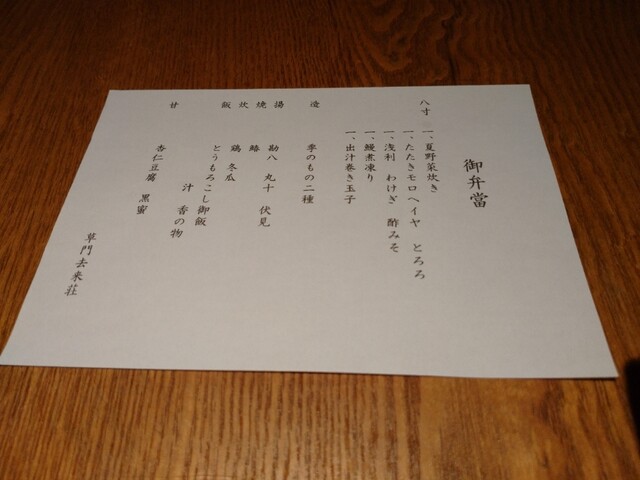 御弁當
八寸 一、夏野菜炊き
一、たたきモロヘイヤ とろろ
一、浅利 わけぎ 酢みそ
一、鰻煮凍り
一、出汁巻き玉子
造 季のもの二種
揚 勘八 丸十 伏見
焼 鰆
炊 鶏 冬瓜
飯 とうもろこし御飯
汁 香の物
甘 杏仁豆腐 黒蜜
草門去来荘